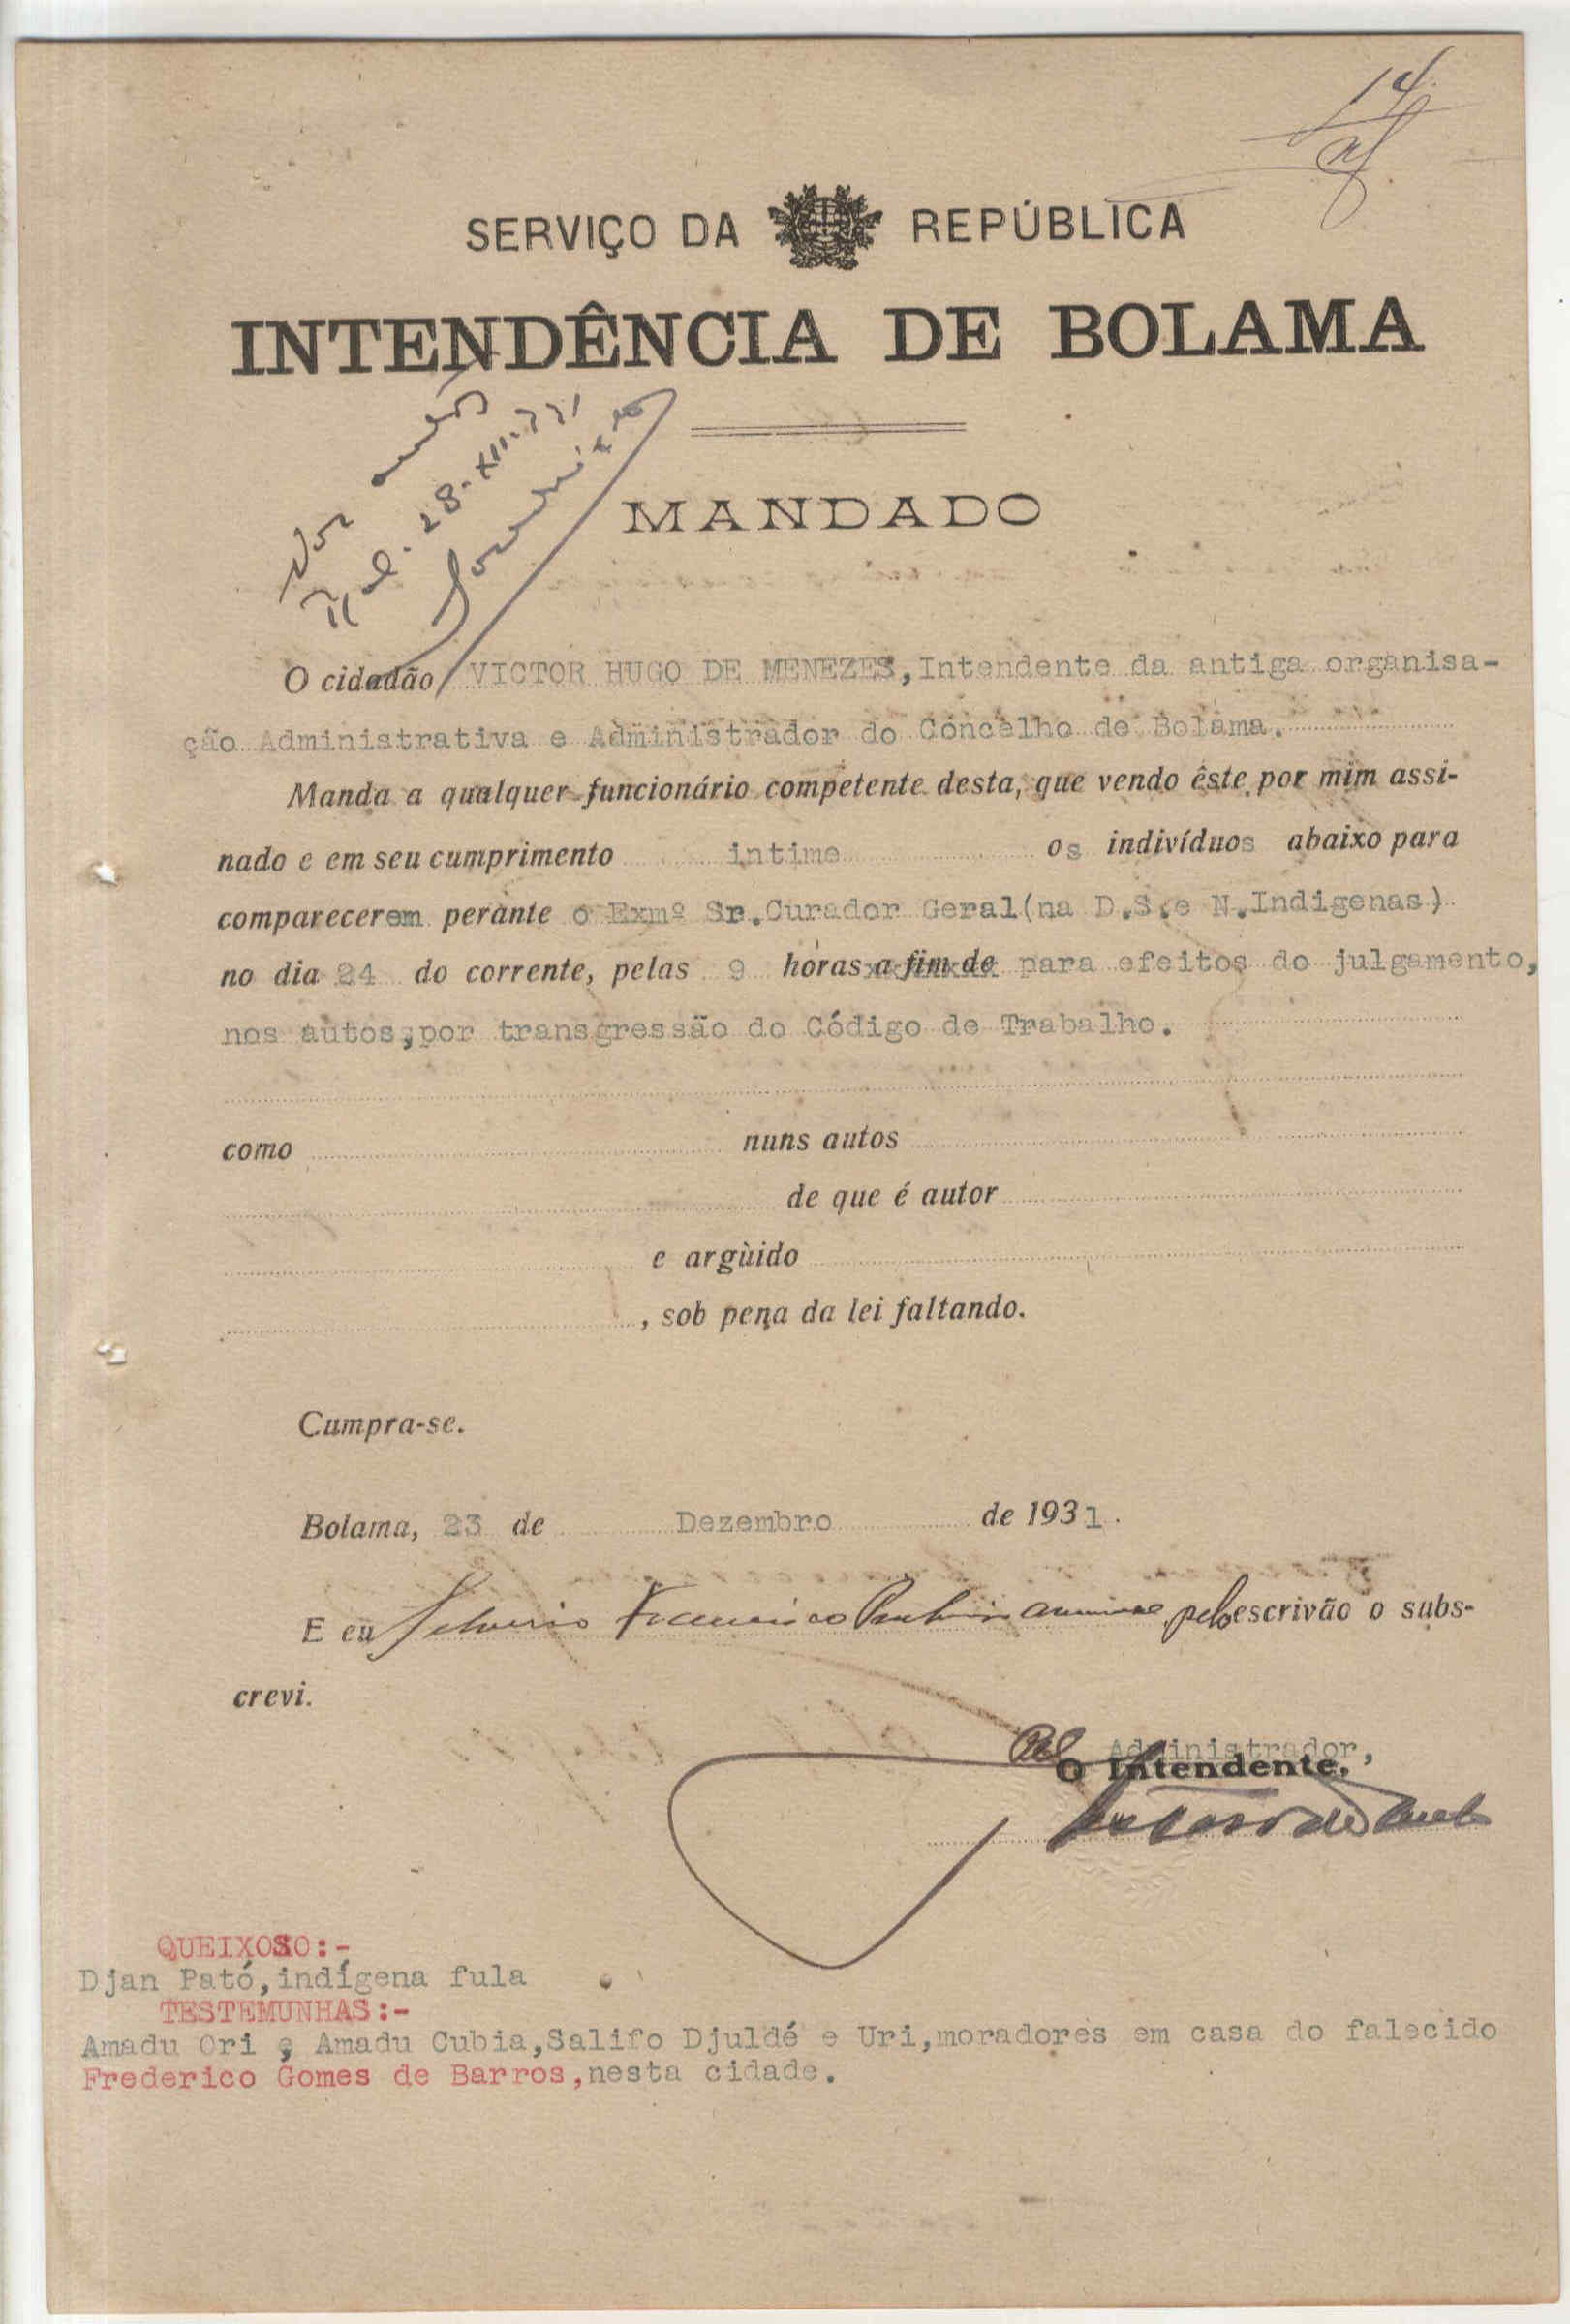 14
SERVIÇO DA REPÚBLICA
INTENDÊNCIA DE BOLAMA
28-XII-931
MANDADO
O cidadão VICTOR HUGO DE MENEZES, Intendente da antiga organisa-
ção Administrativa e Administrador do Concelho de Bolama.
Manda a qualquer funcionário competente desta, que vendo êste por mim assi-
nado e em seu cumprimento intime os indivíduos abaixo para
comparecerem perante o Exmº Sr. Curador Geral (na D.S.e N.Indigenas)
no dia 24 do corrente, pelas 9 horas a fim de para efeitos do julgamento,
nos autos, por transgressão do Código de Trabalho.
como nuns autos
de que é autor
e argùido
, sob pena da lei faltando.
Cumpra-se.
Bolama, 23 de Dezembro de 1931.
E eu Silverio Francisco pelo escrivão o subs-
crevi.
Pel Administrador,
O Intendente,
QUEIXOSO:-
Djan Pató, indígena fula
TESTEMUNHAS:-
Amadu Ori e Amadu Cubia, Salifo Djuldé e Uri, moradores em casa do falecido
Frederico Gomes de Barros, nesta cidade.